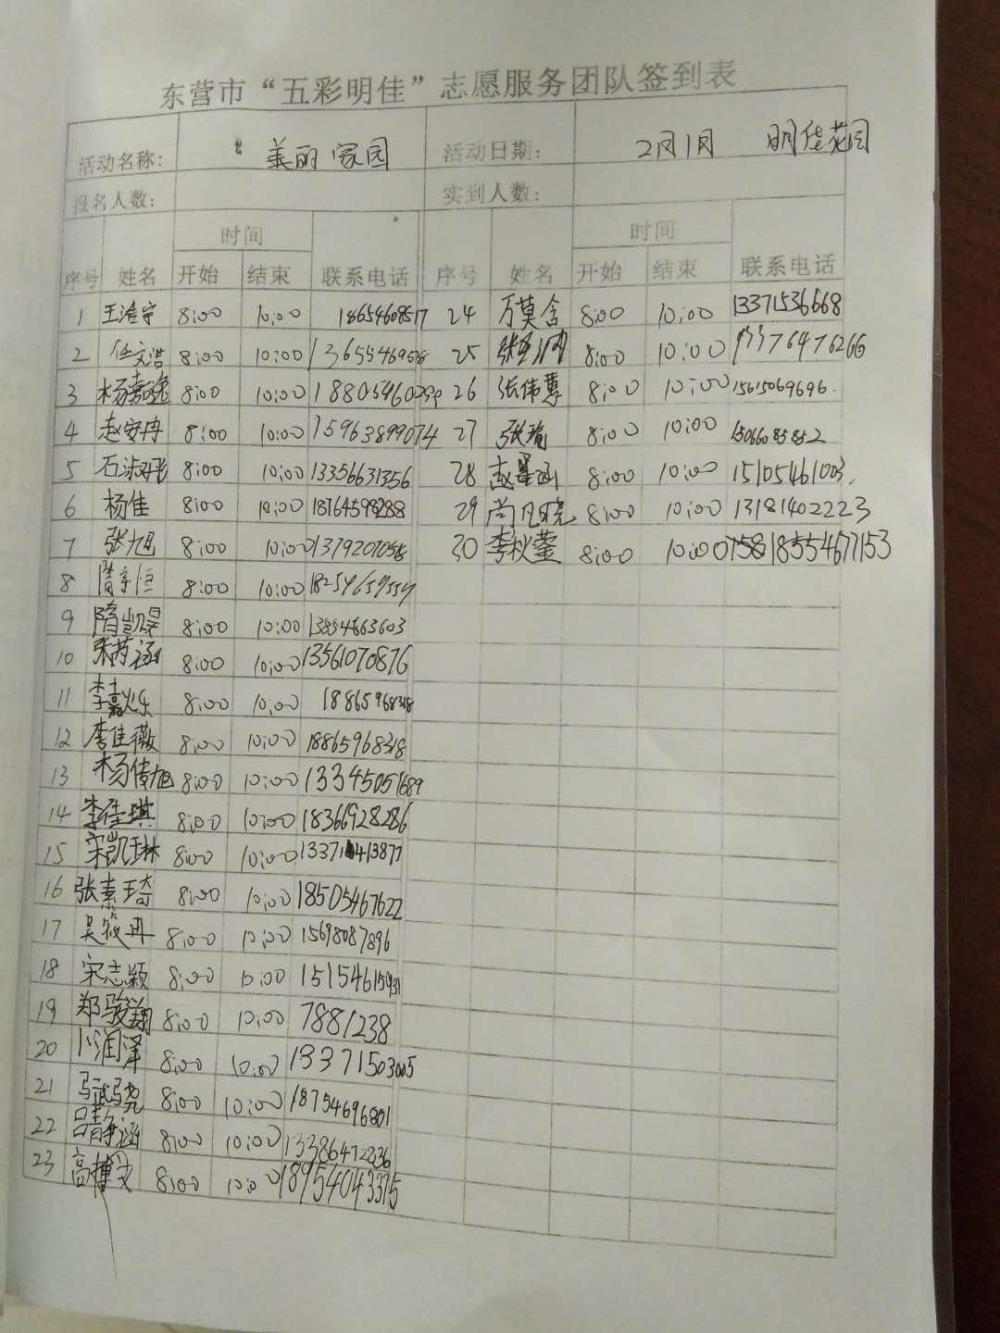 东营市“五彩明佳”志愿服务团队签到表
活动名称： 美丽家园 活动日期： 2月1月 明佳花园
报名人数： 实到人数：
时间 时间
序号 姓名 开始 结束 联系电话 序号 姓名 开始 结束 联系电话
1 8:00 10:00 18654608517 24 万莫含 8:00 10:00 13371536668
2 任文浩 8:00 10:00 25 8:00 10:00
3 杨嘉逸 8:00 10:00 26 张伟慧 8:00 10:00 15615069696
4 赵安冉 8:00 10:00 15963899074 27 张瑜 8:00 10:00 15066085852
5 8:00 10:00 13356631356 28 赵星函 8:00 10:00 15105461003
6 杨佳 8:00 10:00 18764598288 29 尚凡皓 8:00 10:00 13181402223
7 张旭 8:00 10:00 1379207058 30 李秋莹 8:00 10:00 18554677153
8 隋宇恒 8:00 10:00 18254659557
9 隋凯昊 8:00 10:00 13854663603
10 张芮涵 8:00 10:00 13561070876
11 李嘉烁 8:00 10:00 18865968318
12 李佳薇 8:00 10:00 18865968318
13 杨倚旭 8:00 10:00 13345051689
14 李佳琪 8:00 10:00 18366928286
15 宋凯琳 8:00 10:00 13371413877
16 张素琦 8:00 10:00 18505467622
17 吴筱冉 8:00 10:00 15698087896
18 宋志颖 8:00 10:00 15154615931
19 郑骏翔 8:00 10:00 7881238
20 卜润泽 8:00 10:00 13371503005
21 马武骁 8:00 10:00 18754696801
22 吕静涵 8:00 10:00 13386472836
23 高博文 8:00 10:00 18954043375